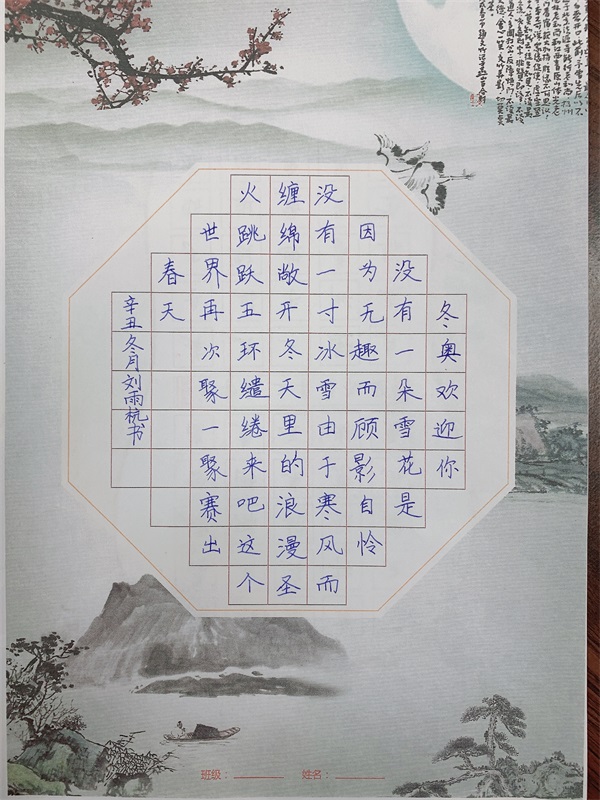 冬奥欢迎你
没有一朵雪花是
因为无趣而顾影自怜
没有一寸冰雪由于寒风而
缠绵敞开冬天里的浪漫圣
火跳跃五环缱绻来吧这个
世界再次聚一聚赛出
春天
辛丑冬月刘雨杭书
班级： 姓名：